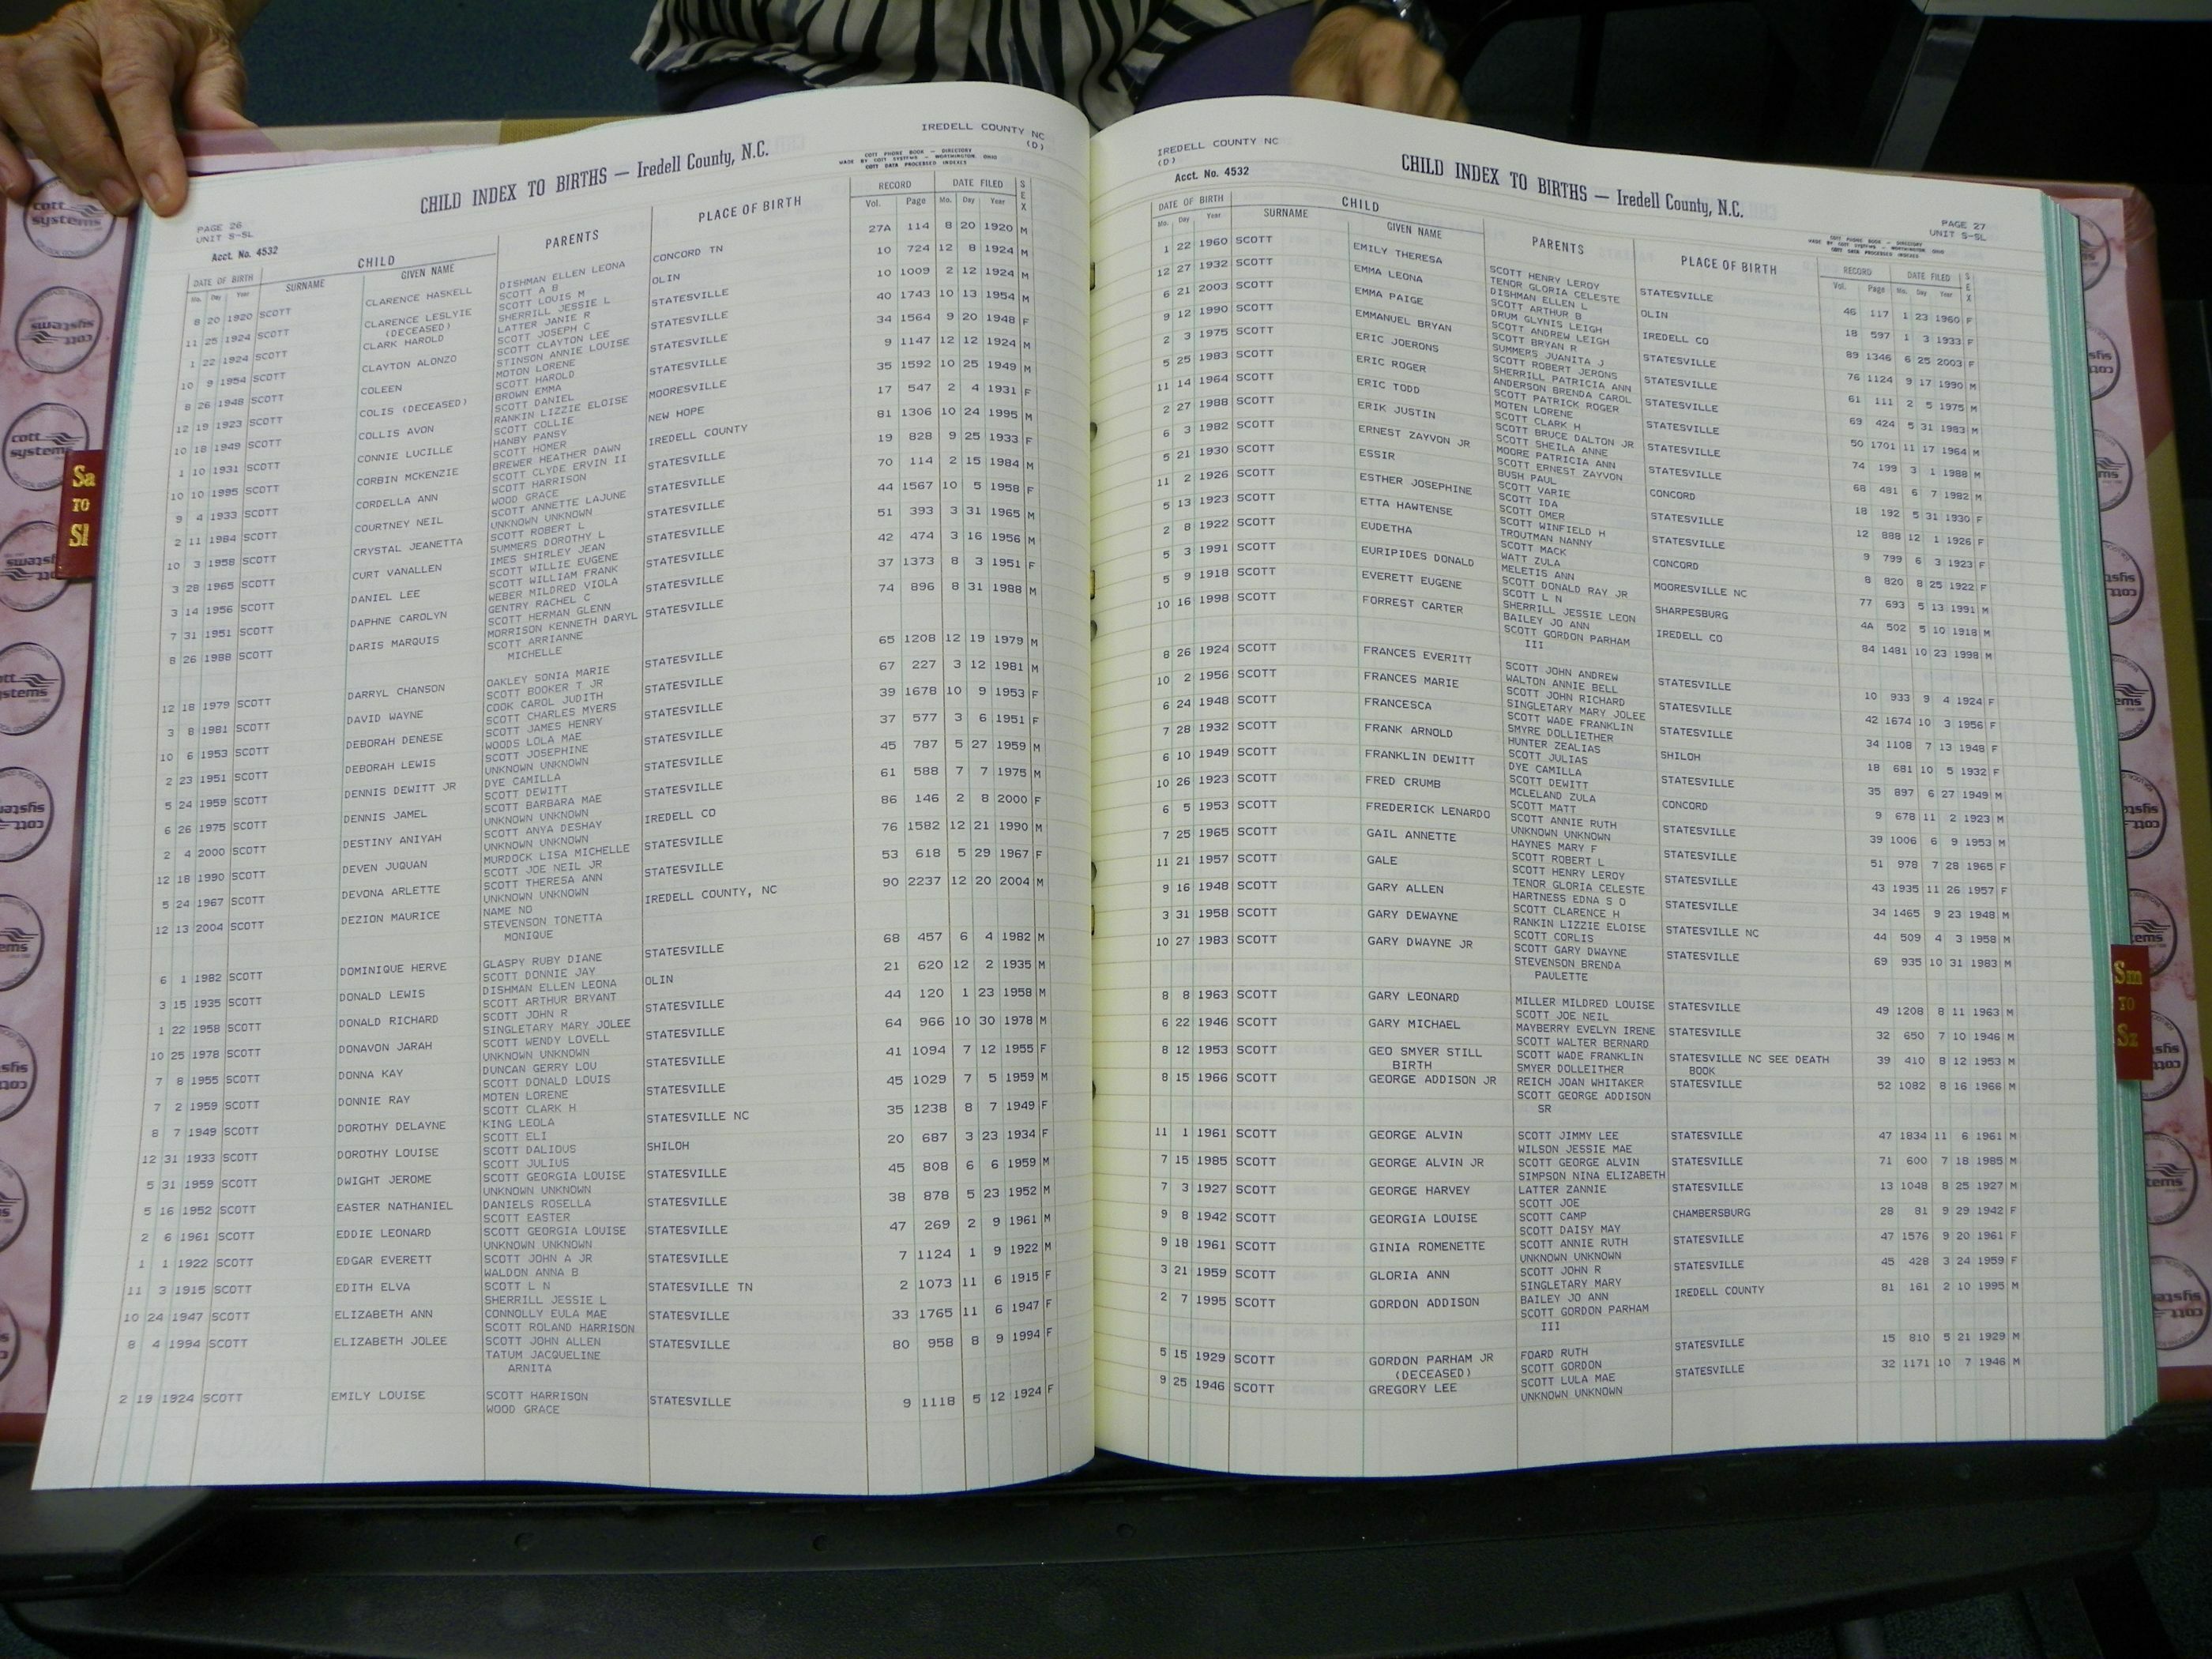 IREDELL COUNTY NC
(D)
CHILD INDEX TO BIRTHS — Iredell County, N.C.
COTT PHONE BOOK — DIRECTORY
MADE BY COTT SYSTEMS — WORTHINGTON, OHIO
COTT DATA PROCESSED INDEXES
PAGE 26
UNIT S-SL
Acct. No. 4532
DATE OF BIRTH CHILD PARENTS PLACE OF BIRTH RECORD DATE FILED SEX
Mo. Day Year SURNAME GIVEN NAME Vol. Page Mo. Day Year
8 20 1920 SCOTT CLARENCE HASKELL DISHMAN ELLEN LEONA CONCORD TN 27A 114 8 20 1920 M
SCOTT A B
11 25 1924 SCOTT CLARENCE LESLYIE SCOTT LOUIS M OLIN 10 724 12 8 1924 M
(DECEASED) SHERRILL JESSIE L
1 22 1924 SCOTT CLARK HAROLD LATTER JANIE R STATESVILLE 10 1009 2 12 1924 M
SCOTT JOSEPH C
10 9 1954 SCOTT CLAYTON ALONZO SCOTT CLAYTON LEE STATESVILLE 40 1743 10 13 1954 M
STINSON ANNIE LOUISE
8 26 1948 SCOTT COLEEN MOTON LORENE STATESVILLE 34 1564 9 20 1948 F
SCOTT HAROLD
12 19 1923 SCOTT COLIS (DECEASED) BROWN EMMA STATESVILLE 9 1147 12 12 1924 M
SCOTT DANIEL
10 18 1949 SCOTT COLLIS AVON RANKIN LIZZIE ELOISE MOORESVILLE 35 1592 10 25 1949 M
SCOTT COLLIE
1 10 1931 SCOTT CONNIE LUCILLE HANBY PANSY NEW HOPE 17 547 2 4 1931 F
SCOTT HOMER
10 10 1995 SCOTT CORBIN MCKENZIE BREWER HEATHER DAWN IREDELL COUNTY 81 1306 10 24 1995 M
SCOTT CLYDE ERVIN II
9 4 1933 SCOTT CORDELLA ANN SCOTT HARRISON STATESVILLE 19 828 9 25 1933 F
WOOD GRACE
2 11 1984 SCOTT COURTNEY NEIL SCOTT ANNETTE LAJUNE STATESVILLE 70 114 2 15 1984 M
UNKNOWN UNKNOWN
10 3 1958 SCOTT CRYSTAL JEANETTA SCOTT ROBERT L STATESVILLE 44 1567 10 5 1958 F
SUMMERS DOROTHY L
3 28 1965 SCOTT CURT VANALLEN IMES SHIRLEY JEAN STATESVILLE 51 393 3 31 1965 M
SCOTT WILLIE EUGENE
3 14 1956 SCOTT DANIEL LEE SCOTT WILLIAM FRANK STATESVILLE 42 474 3 16 1956 M
WEBER MILDRED VIOLA
7 31 1951 SCOTT DAPHNE CAROLYN GENTRY RACHEL C STATESVILLE 37 1373 8 3 1951 F
SCOTT HERMAN GLENN
8 26 1988 SCOTT DARIS MARQUIS MORRISON KENNETH DARYL STATESVILLE 74 896 8 31 1988 M
SCOTT ARRIANNE
MICHELLE
12 18 1979 SCOTT DARRYL CHANSON OAKLEY SONIA MARIE STATESVILLE 65 1208 12 19 1979 M
SCOTT BOOKER T JR
3 8 1981 SCOTT DAVID WAYNE COOK CAROL JUDITH STATESVILLE 67 227 3 12 1981 M
SCOTT CHARLES MYERS
10 6 1953 SCOTT DEBORAH DENESE SCOTT JAMES HENRY STATESVILLE 39 1678 10 9 1953 F
WOODS LOLA MAE
2 23 1951 SCOTT DEBORAH LEWIS SCOTT JOSEPHINE STATESVILLE 37 577 3 6 1951 F
UNKNOWN UNKNOWN
5 24 1959 SCOTT DENNIS DEWITT JR DYE CAMILLA STATESVILLE 45 787 5 27 1959 M
SCOTT DEWITT
6 26 1975 SCOTT DENNIS JAMEL SCOTT BARBARA MAE STATESVILLE 61 588 7 7 1975 M
UNKNOWN UNKNOWN
2 4 2000 SCOTT DESTINY ANIYAH SCOTT ANYA DESHAY IREDELL CO 86 146 2 8 2000 F
UNKNOWN UNKNOWN
12 18 1990 SCOTT DEVEN JUQUAN MURDOCK LISA MICHELLE STATESVILLE 76 1582 12 21 1990 M
SCOTT JOE NEIL JR
5 24 1967 SCOTT DEVONA ARLETTE SCOTT THERESA ANN STATESVILLE 53 618 5 29 1967 F
UNKNOWN UNKNOWN
12 13 2004 SCOTT DEZION MAURICE NAME NO IREDELL COUNTY, NC 90 2237 12 20 2004 M
STEVENSON TONETTA
MONIQUE
6 1 1982 SCOTT DOMINIQUE HERVE GLASPY RUBY DIANE STATESVILLE 68 457 6 4 1982 M
SCOTT DONNIE JAY
3 15 1935 SCOTT DONALD LEWIS DISHMAN ELLEN LEONA OLIN 21 620 12 2 1935 M
SCOTT ARTHUR BRYANT
1 22 1958 SCOTT DONALD RICHARD SCOTT JOHN R STATESVILLE 44 120 1 23 1958 M
SINGLETARY MARY JOLEE
10 25 1978 SCOTT DONAVON JARAH SCOTT WENDY LOVELL STATESVILLE 64 966 10 30 1978 M
UNKNOWN UNKNOWN
7 8 1955 SCOTT DONNA KAY DUNCAN GERRY LOU STATESVILLE 41 1094 7 12 1955 F
SCOTT DONALD LOUIS
7 2 1959 SCOTT DONNIE RAY MOTEN LORENE STATESVILLE 45 1029 7 5 1959 M
SCOTT CLARK H
8 7 1949 SCOTT DOROTHY DELAYNE KING LEOLA STATESVILLE NC 35 1238 8 7 1949 F
SCOTT ELI
12 31 1933 SCOTT DOROTHY LOUISE SCOTT DALIOUS SHILOH 20 687 3 23 1934 F
SCOTT JULIUS
5 31 1959 SCOTT DWIGHT JEROME SCOTT GEORGIA LOUISE STATESVILLE 45 808 6 6 1959 M
UNKNOWN UNKNOWN
5 16 1952 SCOTT EASTER NATHANIEL DANIELS ROSELLA STATESVILLE 38 878 5 23 1952 M
SCOTT EASTER
2 6 1961 SCOTT EDDIE LEONARD SCOTT GEORGIA LOUISE STATESVILLE 47 269 2 9 1961 M
UNKNOWN UNKNOWN
1 1 1922 SCOTT EDGAR EVERETT SCOTT JOHN A JR STATESVILLE 7 1124 1 9 1922 M
WALDON ANNA B
11 3 1915 SCOTT EDITH ELVA SCOTT L N STATESVILLE TN 2 1073 11 6 1915 F
SHERRILL JESSIE L
10 24 1947 SCOTT ELIZABETH ANN CONNOLLY EULA MAE STATESVILLE 33 1765 11 6 1947 F
SCOTT ROLAND HARRISON
8 4 1994 SCOTT ELIZABETH JOLEE SCOTT JOHN ALLEN STATESVILLE 80 958 8 9 1994 F
TATUM JACQUELINE
ARNITA
2 19 1924 SCOTT EMILY LOUISE SCOTT HARRISON STATESVILLE 9 1118 5 12 1924 F
WOOD GRACE
IREDELL COUNTY NC
(D)
Acct. No. 4532
CHILD INDEX TO BIRTHS — Iredell County, N.C.
PAGE 27
UNIT S-SL
COTT PHONE BOOK — DIRECTORY
MADE BY COTT SYSTEMS — WORTHINGTON, OHIO
COTT DATA PROCESSED INDEXES
DATE OF BIRTH CHILD PARENTS PLACE OF BIRTH RECORD DATE FILED SEX
Mo. Day Year SURNAME GIVEN NAME Vol. Page Mo. Day Year
1 22 1960 SCOTT EMILY THERESA SCOTT HENRY LEROY STATESVILLE 46 117 1 23 1960 F
TENOR GLORIA CELESTE
12 27 1932 SCOTT EMMA LEONA DISHMAN ELLEN L OLIN 18 597 1 3 1933 F
SCOTT ARTHUR B
6 21 2003 SCOTT EMMA PAIGE DRUM GLYNIS LEIGH IREDELL CO 89 1346 6 25 2003 F
SCOTT ANDREW LEIGH
9 12 1990 SCOTT EMMANUEL BRYAN SCOTT BRYAN R STATESVILLE 76 1124 9 17 1990 M
SUMMERS JUANITA J
2 3 1975 SCOTT ERIC JOERONS SCOTT ROBERT JERONS STATESVILLE 61 111 2 5 1975 M
SHERRILL PATRICIA ANN
5 25 1983 SCOTT ERIC ROGER ANDERSON BRENDA CAROL STATESVILLE 69 424 5 31 1983 M
SCOTT PATRICK ROGER
11 14 1964 SCOTT ERIC TODD MOTEN LORENE STATESVILLE 50 1701 11 17 1964 M
SCOTT CLARK H
2 27 1988 SCOTT ERIK JUSTIN SCOTT BRUCE DALTON JR STATESVILLE 74 199 3 1 1988 M
SCOTT SHEILA ANNE
6 3 1982 SCOTT ERNEST ZAYVON JR MOORE PATRICIA ANN STATESVILLE 68 481 6 7 1982 M
SCOTT ERNEST ZAYVON
5 21 1930 SCOTT ESSIR BUSH PAUL CONCORD 18 192 5 31 1930 F
SCOTT VARIE
11 2 1926 SCOTT ESTHER JOSEPHINE SCOTT IDA STATESVILLE 12 888 12 1 1926 F
SCOTT OMER
5 13 1923 SCOTT ETTA HAWTENSE SCOTT WINFIELD H STATESVILLE 9 799 6 3 1923 F
TROUTMAN NANNY
2 8 1922 SCOTT EUDETHA SCOTT MACK CONCORD 8 820 8 25 1922 F
WATT ZULA
5 3 1991 SCOTT EURIPIDES DONALD MELETIS ANN MOORESVILLE NC 77 693 5 13 1991 M
SCOTT DONALD RAY JR
5 9 1918 SCOTT EVERETT EUGENE SCOTT L N SHARPESBURG 4A 502 5 10 1918 M
SHERRILL JESSIE LEON
10 16 1998 SCOTT FORREST CARTER BAILEY JO ANN IREDELL CO 84 1481 10 23 1998 M
SCOTT GORDON PARHAM
III
8 26 1924 SCOTT FRANCES EVERITT SCOTT JOHN ANDREW STATESVILLE 10 933 9 4 1924 F
WALTON ANNIE BELL
10 2 1956 SCOTT FRANCES MARIE SCOTT JOHN RICHARD STATESVILLE 42 1674 10 3 1956 F
SINGLETARY MARY JOLEE
6 24 1948 SCOTT FRANCESCA SCOTT WADE FRANKLIN STATESVILLE 34 1108 7 13 1948 F
SMYRE DOLLIETHER
7 28 1932 SCOTT FRANK ARNOLD HUNTER ZEALIAS SHILOH 18 681 10 5 1932 F
SCOTT JULIAS
6 10 1949 SCOTT FRANKLIN DEWITT DYE CAMILLA STATESVILLE 35 897 6 27 1949 M
SCOTT DEWITT
10 26 1923 SCOTT FRED CRUMB MCLELAND ZULA CONCORD 9 678 11 2 1923 M
SCOTT MATT
6 5 1953 SCOTT FREDERICK LENARDO SCOTT ANNIE RUTH STATESVILLE 39 1006 6 9 1953 M
UNKNOWN UNKNOWN
7 25 1965 SCOTT GAIL ANNETTE HAYNES MARY F STATESVILLE 51 978 7 28 1965 F
SCOTT ROBERT L
11 21 1957 SCOTT GALE SCOTT HENRY LEROY STATESVILLE 43 1935 11 26 1957 F
TENOR GLORIA CELESTE
9 16 1948 SCOTT GARY ALLEN HARTNESS EDNA S O STATESVILLE 34 1465 9 23 1948 M
SCOTT CLARENCE H
3 31 1958 SCOTT GARY DEWAYNE RANKIN LIZZIE ELOISE STATESVILLE NC 44 509 4 3 1958 M
SCOTT CORLIS
10 27 1983 SCOTT GARY DWAYNE JR SCOTT GARY DWAYNE STATESVILLE 69 935 10 31 1983 M
STEVENSON BRENDA
PAULETTE
8 8 1963 SCOTT GARY LEONARD MILLER MILDRED LOUISE STATESVILLE 49 1208 8 11 1963 M
SCOTT JOE NEIL
6 22 1946 SCOTT GARY MICHAEL MAYBERRY EVELYN IRENE STATESVILLE 32 650 7 10 1946 M
SCOTT WALTER BERNARD
8 12 1953 SCOTT GEO SMYER STILL SCOTT WADE FRANKLIN STATESVILLE NC SEE DEATH 39 410 8 12 1953 M
BIRTH SMYER DOLLEITHER BOOK
8 15 1966 SCOTT GEORGE ADDISON JR REICH JOAN WHITAKER STATESVILLE 52 1082 8 16 1966 M
SCOTT GEORGE ADDISON
SR
11 1 1961 SCOTT GEORGE ALVIN SCOTT JIMMY LEE STATESVILLE 47 1834 11 6 1961 M
WILSON JESSIE MAE
7 15 1985 SCOTT GEORGE ALVIN JR SCOTT GEORGE ALVIN STATESVILLE 71 600 7 18 1985 M
SIMPSON NINA ELIZABETH
7 3 1927 SCOTT GEORGE HARVEY LATTER ZANNIE STATESVILLE 13 1048 8 25 1927 M
SCOTT JOE
9 8 1942 SCOTT GEORGIA LOUISE SCOTT CAMP CHAMBERSBURG 28 81 9 29 1942 F
SCOTT DAISY MAY
9 18 1961 SCOTT GINIA ROMENETTE SCOTT ANNIE RUTH STATESVILLE 47 1576 9 20 1961 F
UNKNOWN UNKNOWN
3 21 1959 SCOTT GLORIA ANN SCOTT JOHN R STATESVILLE 45 428 3 24 1959 F
SINGLETARY MARY
2 7 1995 SCOTT GORDON ADDISON BAILEY JO ANN IREDELL COUNTY 81 161 2 10 1995 M
SCOTT GORDON PARHAM
III
5 15 1929 SCOTT GORDON PARHAM JR FOARD RUTH STATESVILLE 15 810 5 21 1929 M
(DECEASED) SCOTT GORDON
9 25 1946 SCOTT GREGORY LEE SCOTT LULA MAE STATESVILLE 32 1171 10 7 1946 M
UNKNOWN UNKNOWN
Sa
TO
Sl
Sm
TO
Sz
cott systems